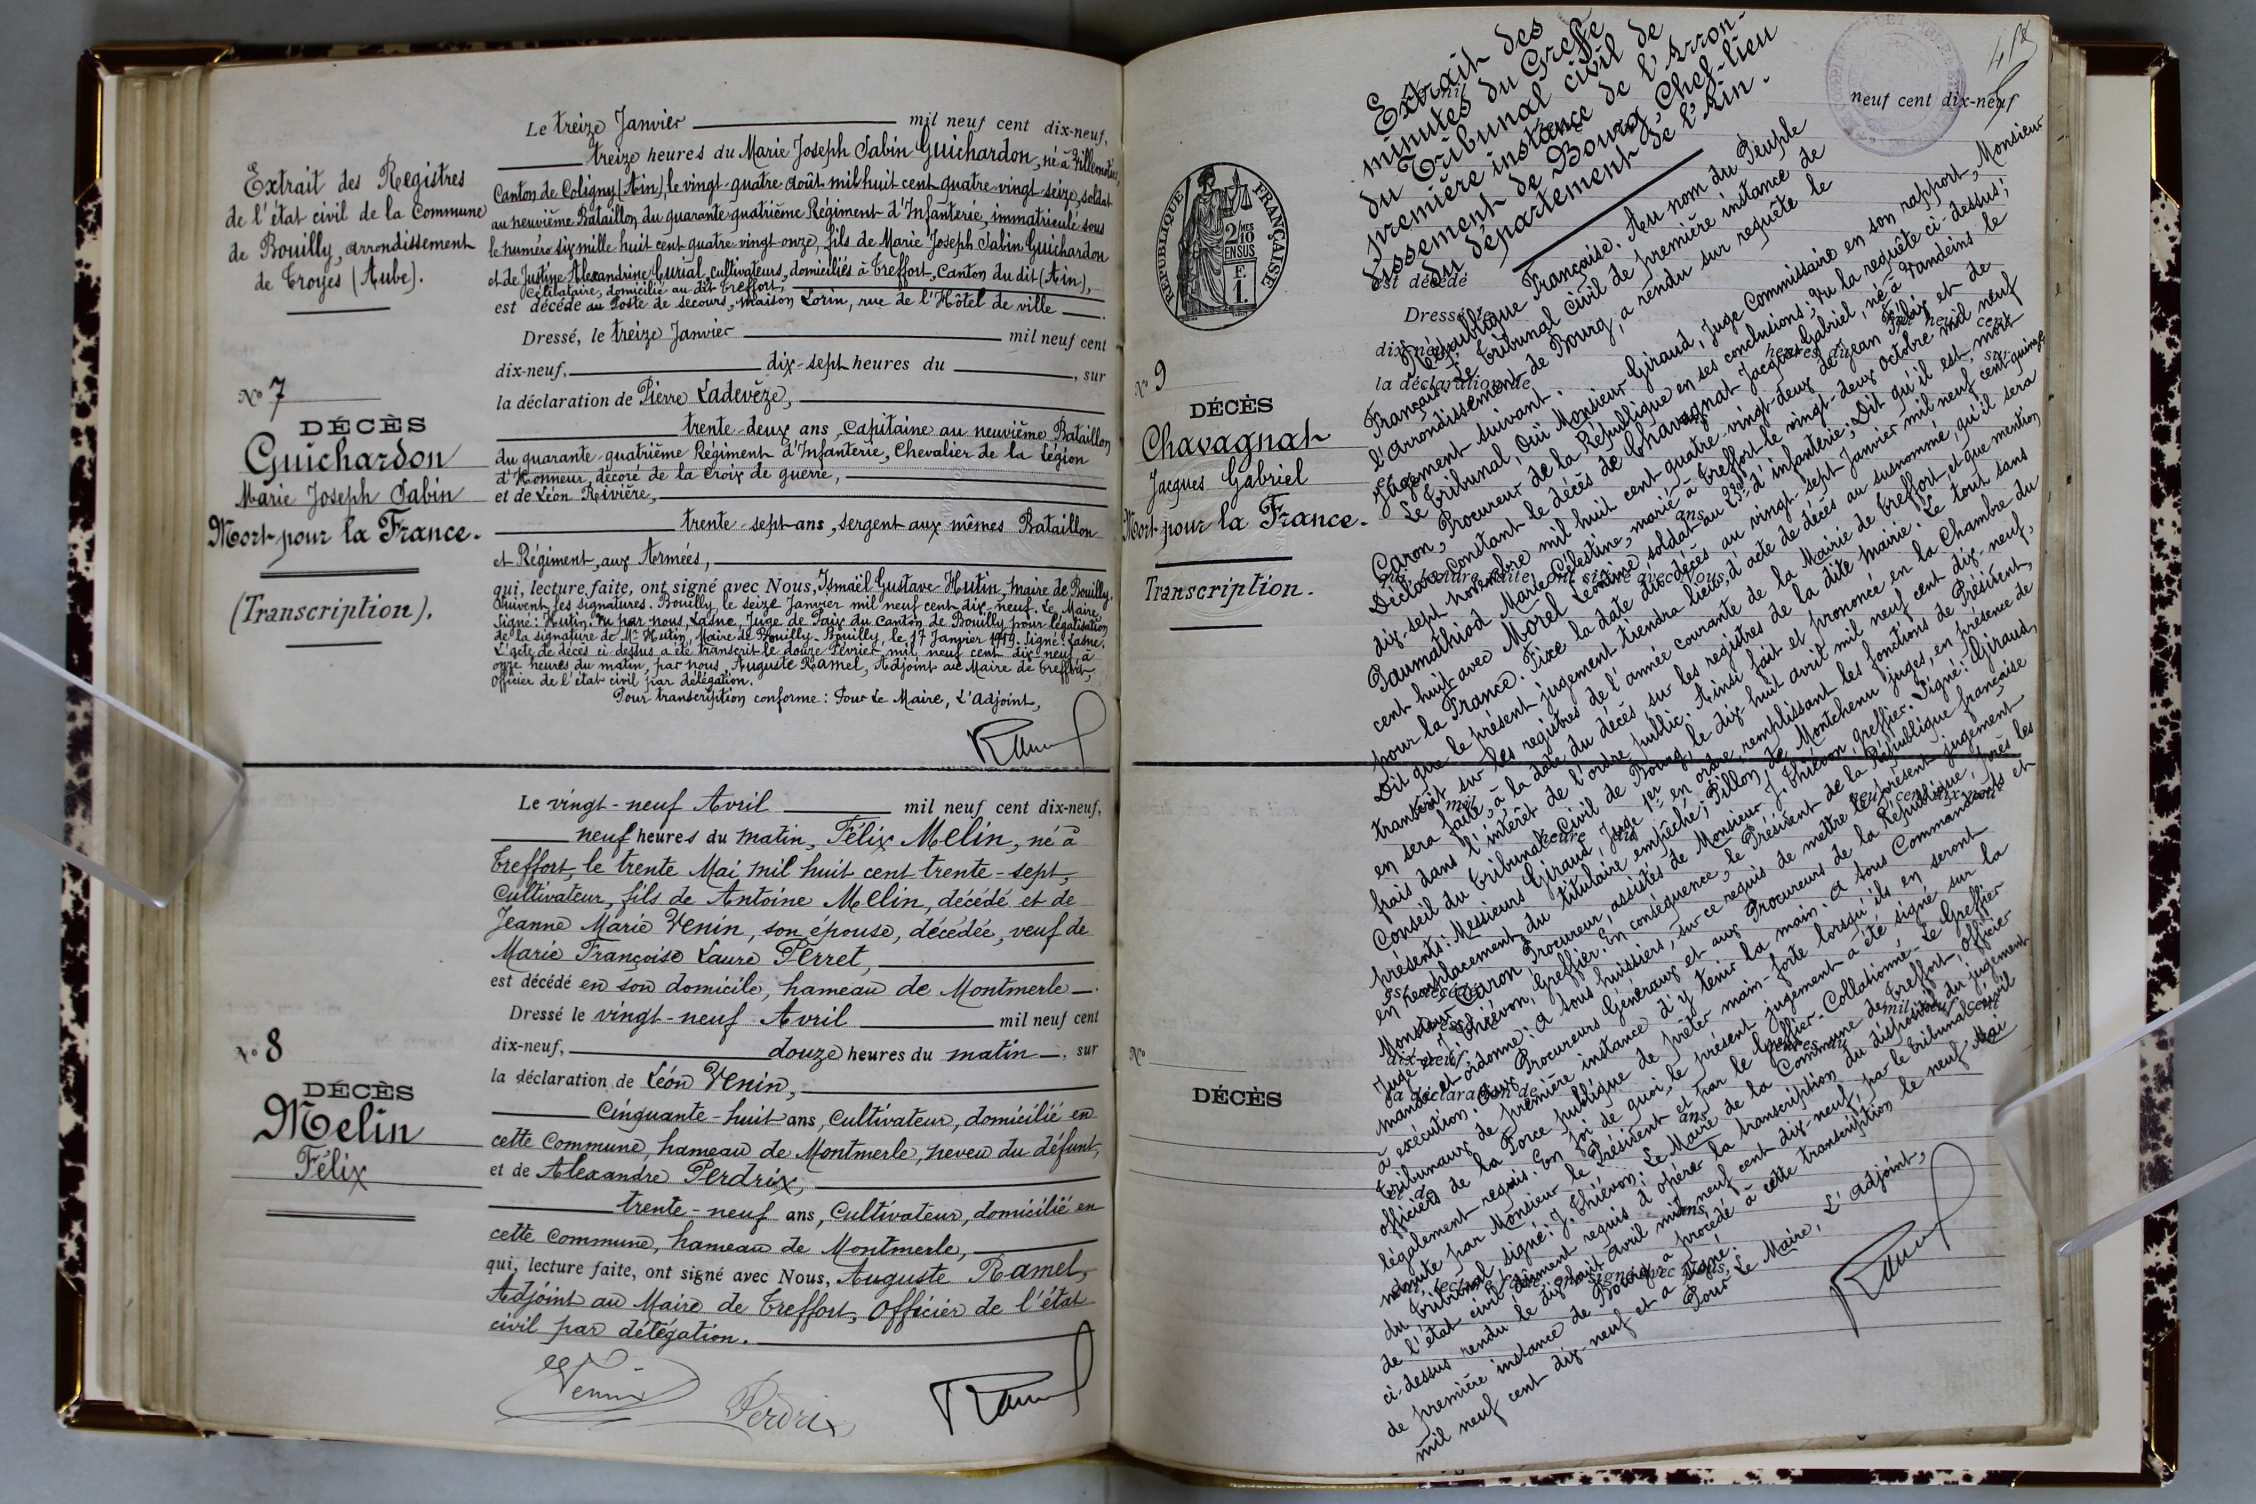 Extrait des Registres
de l'état civil de la Commune
de Bouilly, arrondissement
de Troyes (Aube).
N° 7
DÉCÈS
Guichardon
Marie Joseph Sabin
Mort pour la France.
(Transcription).
Le treize Janvier mil neuf cent dix-neuf,
treize heures du Marie Joseph Sabin Guichardon, né à Villemotier,
Canton de Coligny (Ain), le vingt-quatre août mil huit cent quatre-vingt-seize, soldat
au neuvième Bataillon du quarante-quatrième Régiment d'Infanterie, immatriculé sous
le numéro six mille huit cent quatre-vingt-onze, fils de Marie Joseph Sabin Guichardon
et de Justine Alexandrine Curial, cultivateurs, domiciliés à Treffort, Canton du dit (Ain),
Célibataire, domicilié au dit Treffort,
est décédé au Poste de secours, maison Lorin, rue de l'Hôtel de ville.
Dressé, le treize Janvier mil neuf cent
dix-neuf, dix-sept heures du , sur
la déclaration de Pierre Ladevèze,
trente-deux ans, Capitaine au neuvième Bataillon
du quarante-quatrième Régiment d'Infanterie, Chevalier de la Légion
d'Honneur, décoré de la croix de guerre,
et de Léon Rivière,
trente-sept ans, sergent aux mêmes Bataillon
et Régiment, aux Armées,
qui, lecture faite, ont signé avec Nous, Ismaël Gustave Hutin, maire de Bouilly.
Suivent les signatures. Bouilly, le seize Janvier mil neuf cent dix-neuf. Le Maire,
Signé: Hutin. Vu par nous, Lasne, Juge de Paix du canton de Bouilly pour légalisation
de la signature de Mr Hutin, Maire de Bouilly. Bouilly, le 17 Janvier 1919. Signé: Lasne.
L'acte de décès ci dessus a été transcrit le douze Février mil neuf cent dix neuf à
onze heures du matin, par nous, Auguste Ramel, Adjoint au Maire de Treffort,
Officier de l'état civil par délégation.
Pour transcription conforme: Pour Le Maire, L'Adjoint,
Ramel
N° 8
DÉCÈS
Melin
Félix
Le vingt-neuf Avril mil neuf cent dix-neuf,
neuf heures du matin, Félix Melin, né à
Treffort, le trente Mai mil huit cent trente-sept,
Cultivateur, fils de Antoine Melin, décédé et de
Jeanne Marie Venin, son épouse, décédée, veuf de
Marie Françoise Laure Perret,
est décédé en son domicile, hameau de Montmerle.
Dressé le vingt-neuf Avril mil neuf cent
dix-neuf, douze heures du matin, sur
la déclaration de Léon Venin,
cinquante-huit ans, Cultivateur, domicilié en
cette Commune, hameau de Montmerle, neveu du défunt,
et de Alexandre Perdrix,
trente-neuf ans, Cultivateur, domicilié en
cette Commune, hameau de Montmerle,
qui, lecture faite, ont signé avec Nous, Auguste Ramel,
Adjoint au Maire de Treffort, Officier de l'état
civil par délégation.
Venin
Perdrix
Ramel
neuf cent dix-neuf
RÉPUBLIQUE FRANÇAISE
2/10 MES
EN SUS
F.
1.
N° 9
DÉCÈS
Chavagnat
Jacques Gabriel
Mort pour la France.
Transcription.
Extrait des
minutes du Greffe
du Tribunal civil de
première instance de l'Arron-
dissement de Bourg, Chef-lieu
du département de l'Ain.
République Française. Au nom du Peuple
Français. Le Tribunal civil de première instance de
l'arrondissement de Bourg, a rendu sur requête le
jugement suivant.
Le Tribunal, Ouï Monsieur Giraud, Juge Commissaire en son rapport, Monsieur
Caron, Procureur de la République en ses conclusions; Vu la requête ci-dessus;
Déclare constant le décès de Chavagnat Jacques Gabriel, né à Vandeins le
dix-sept novembre mil huit cent quatre-vingt-deux de Jean Félix et de
Paumathiod Marie Célestine, marié à Treffort le vingt-deux octobre mil neuf
cent huit avec Morel Léonine, soldat au 23e d'infanterie; Dit qu'il est mort
pour la France. Fixe la date du décès au vingt-sept Janvier mil neuf cent quinze,
Dit que le présent jugement tiendra lieu d'acte de décès au susnommé, qu'il sera
transcrit sur les registres de l'année courante de la Mairie de Treffort et que mention
en sera faite, à la date du décès sur les registres de la dite mairie. Le tout sans
frais dans l'intérêt de l'ordre public. Ainsi fait et prononcé en la Chambre du
Conseil du Tribunal Civil de Bourg, le dix huit avril mil neuf cent dix-neuf,
présents: Messieurs Giraud, Juge 1er en ordre, remplissant les fonctions de Président,
en remplacement du titulaire empêché; Pillon, de Montchenu juges, en présence de
Monsieur Caron Procureur, assistés de Monsieur J. Thiévon, greffier. Signé: Giraud,
Juge et J. Thiévon, Greffier. En conséquence, le Président de la République française
mande et ordonne: A tous huissiers, sur ce requis de mettre le présent jugement
à exécution. Aux Procureurs Généraux et aux Procureurs de la République, près les
Tribunaux de première instance d'y tenir la main. A tous Commandants et
officiers de la Force publique de prêter main-forte lorsqu'ils en seront
légalement requis. En foi de quoi, le présent jugement a été signé sur la
minute par Monsieur le Président et par le Greffier. Collationné. Le Greffier
du Tribunal, signé: J. Thiévon. Le Maire de la Commune de Treffort, Officier
de l'état civil dûment requis d'opérer la transcription du dispositif du jugement
ci-dessus rendu le dix huit Avril mil neuf cent dix-neuf, par le Tribunal civil
de première instance de Bourg, a procédé à cette transcription le neuf Mai
mil neuf cent dix-neuf et a signé.
Pour Le Maire, L'Adjoint,
Ramel
est décédé
Dressé
la déclaration de
N°
DÉCÈS